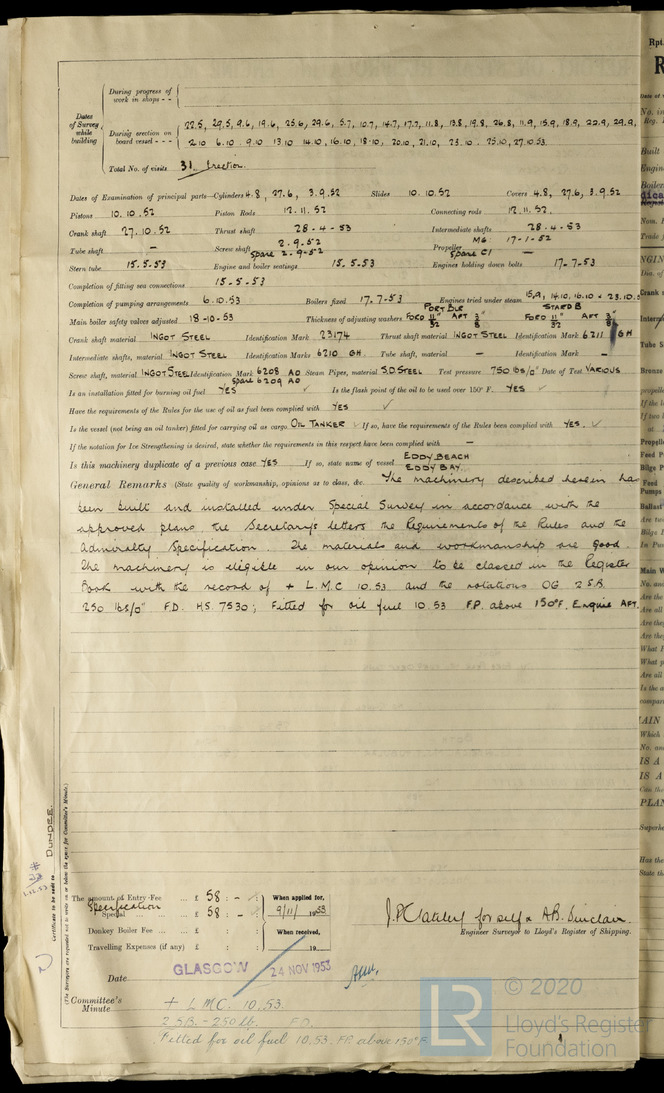 Dates of Survey while building
During progress of work in shops - -
During erection on board vessel - - - 22.5, 29.5, 9.6, 19.6, 25.6, 29.6, 5.7, 10.7, 14.7, 17.7, 11.8, 13.8, 19.8, 26.8, 11.9, 15.9, 18.9, 22.9, 29.9,
2.10 6.10 9.10 13.10 14.10, 16.10, 18.10, 20.10, 21.10, 23.10. 25.10, 27.10.53.
Total No. of visits 31. Erection.
Dates of Examination of principal parts—Cylinders 4.8, 27.6, 3.9.52 Slides 10.10.52 Covers 4.8, 27.6, 3.9.52
Pistons 10.10.52 Piston Rods 12.11.52 Connecting rods 12.11.52.
Crank shaft 27.10.52 Thrust shaft 28.4.53 Intermediate shafts 28.4.53
Tube shaft — Screw shaft 2.9.52 Spare 2.9.52 Propeller MG 17-1-52 Spare CI —
Stern tube 15.5.53 Engine and boiler seatings 15.5.53 Engines holding down bolts 17.7.53
Completion of fitting sea connections 15.5.53
Completion of pumping arrangements 6.10.53 Boilers fixed 17.7.53 Engines tried under steam 15.9, 14.10, 16.10 & 23.10.5
Main boiler safety valves adjusted 18-10-53 Thickness of adjusting washers PORT BLR FORD 11/32" AFT 3/8" STARD B FORD 11/32" AFT 3/8"
Crank shaft material INGOT STEEL Identification Mark 23174 Thrust shaft material INGOT STEEL Identification Mark 6211 GH
Intermediate shafts, material INGOT STEEL Identification Marks 6210 GH. Tube shaft, material — Identification Mark —
Screw shaft, material INGOT STEEL Identification Mark 6208 AO Spare 6209 AO Steam Pipes, material S.D. STEEL Test pressure 750 lbs/□" Date of Test VARIOUS
Is an installation fitted for burning oil fuel YES Is the flash point of the oil to be used over 150° F. YES
Have the requirements of the Rules for the use of oil as fuel been complied with YES
Is the vessel (not being an oil tanker) fitted for carrying oil as cargo. OIL TANKER If so, have the requirements of the Rules been complied with YES.
If the notation for Ice Strengthening is desired, state whether the requirements in this respect have been complied with —
Is this machinery duplicate of a previous case YES If so, state name of vessel EDDY BEACH EDDY BAY.
General Remarks (State quality of workmanship, opinions as to class, &c. The machinery described herein has
been built and installed under Special Survey in accordance with the
approved plans the Secretary's letters the Requirements of the Rules and the
Admiralty Specification. The materials and workmanship are good.
The machinery is eligible in our opinion to be classed in the Register
Book with the record of + L.M.C 10.53 and the notations OG 2 S.B.
250 lbs/□" F.D. H.S. 7530; Fitted for oil fuel 10.53 F.P. above 150°F. Engine AFT.
Certificate to be sent to DUNDEE.
(The Surveyors are requested not to write on or below the space for Committee's Minute.)
The amount of Entry Fee ... £ 58 : - : When applied for,
Specification
Special ... £ 58 : - : 9/11/ 1953
Donkey Boiler Fee ... ... £ : : When received,
Travelling Expenses (if any) £ : : 19
for self & A.B. Sinclair.
Engineer Surveyor to Lloyd's Register of Shipping.
Date GLASGOW 24 NOV 1953
Committee's Minute + L.M.C. 10.53.
2 S.B. - 250 lb. F.D.
Fitted for oil fuel 10.53. F.P. above 150°F.
© 2020
LR
Lloyd's Register
Foundation